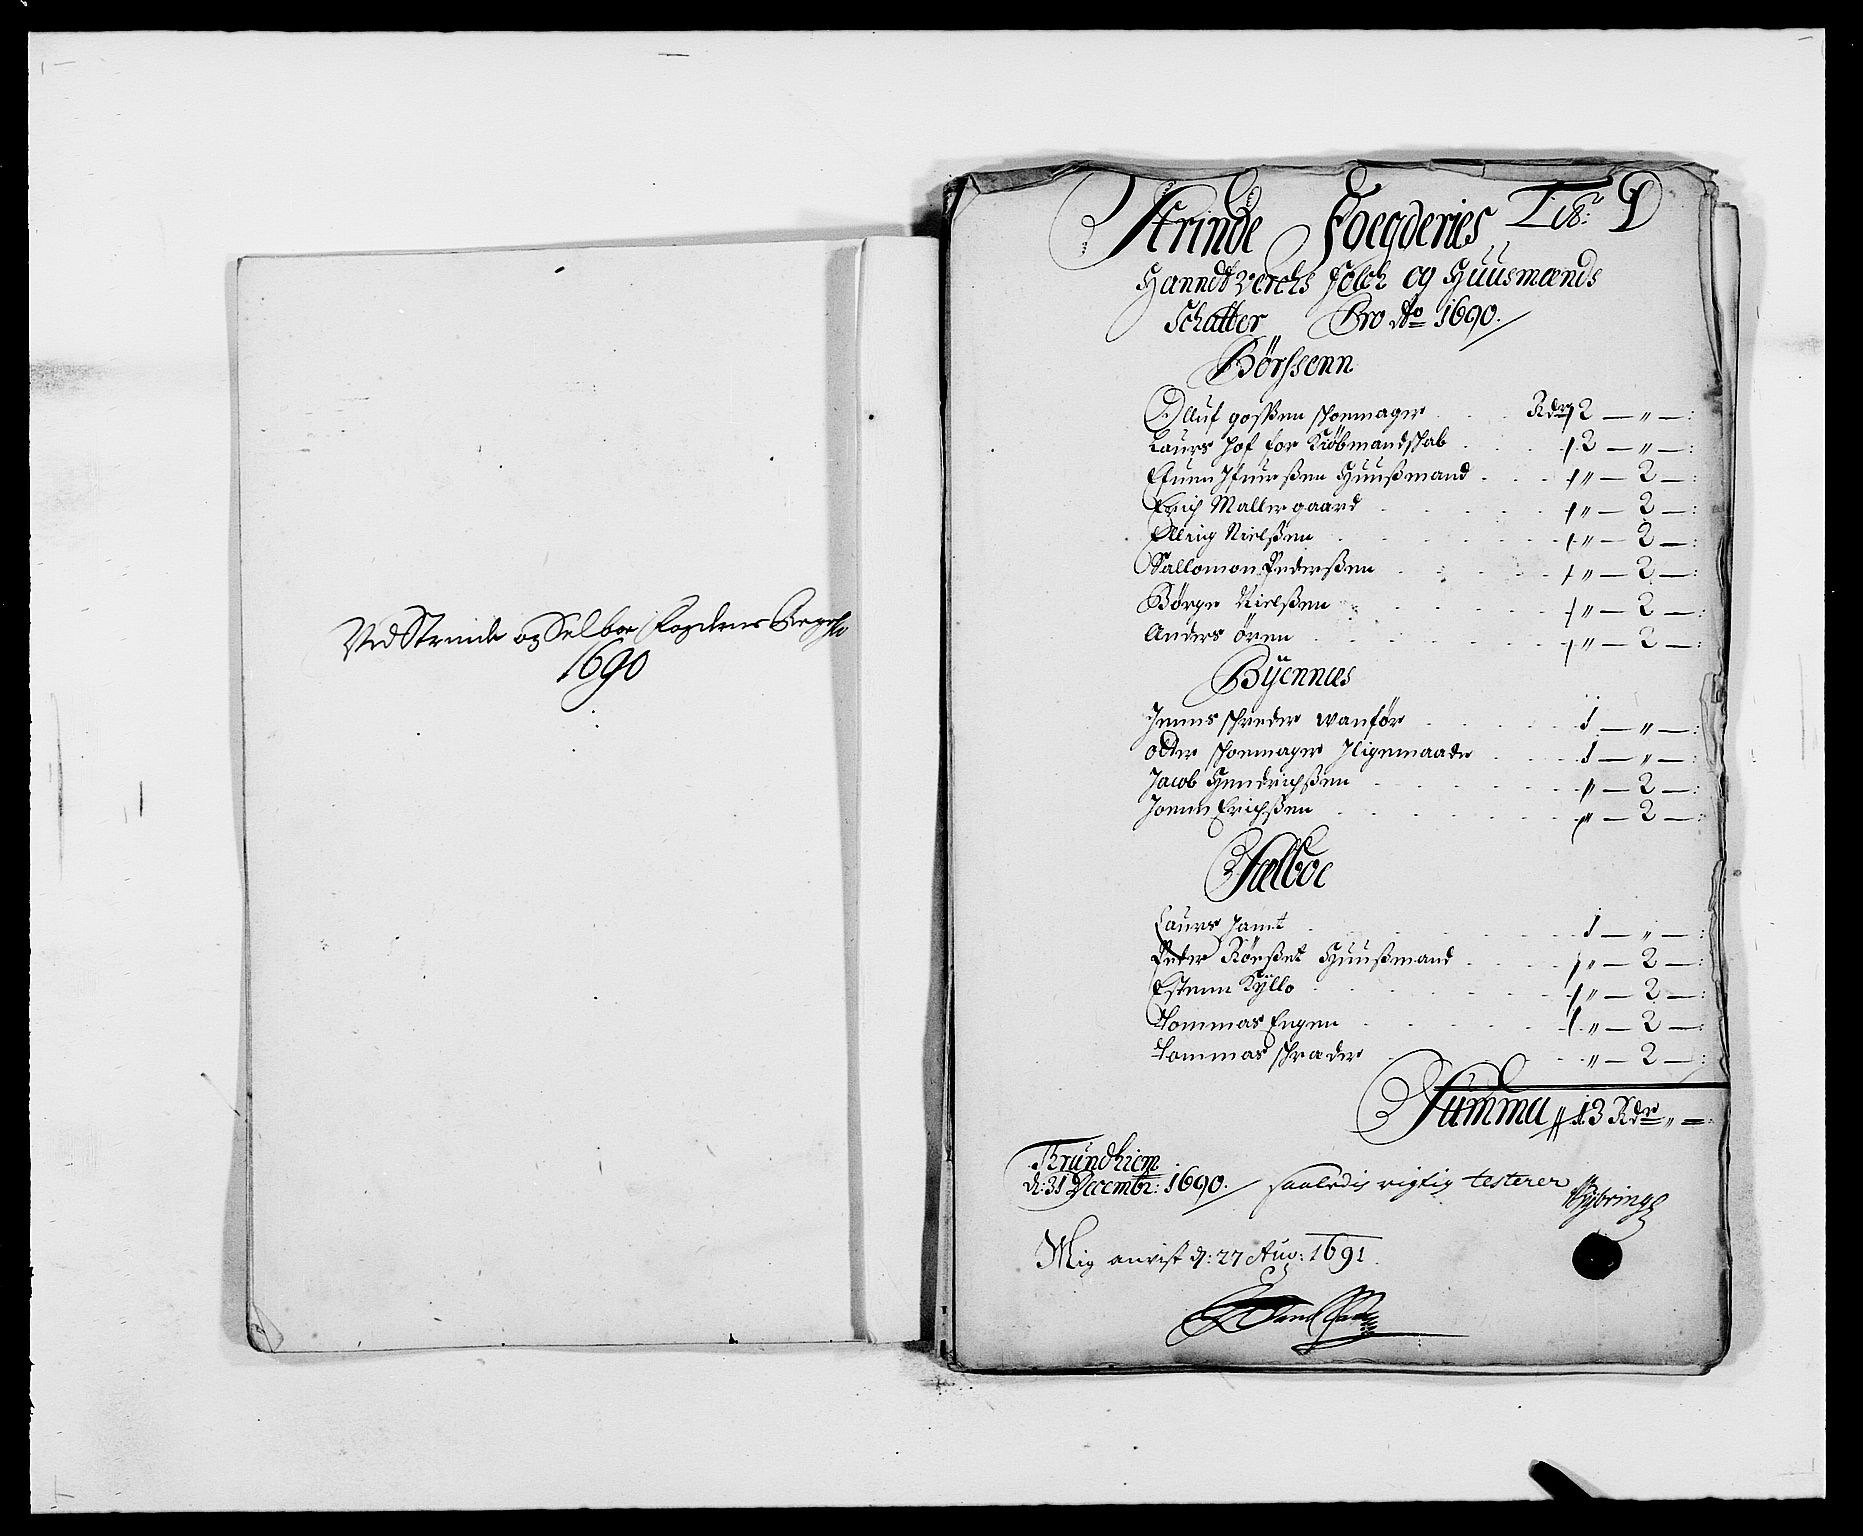 Ved Strinde og Selboe Fogderies Regnsk
1690
Strinde Foegderies Lit: D
Hanndtverchs folch og Huusmænds
Schatter Pro Ao 1690.
Börssenn
Olluf gossen skoemager Rdr 2 — " —:
Laurs Hof for Kiöbmandskab 2 — " —:
Huusmand " — 2 —:
Erich Mallergaard " — 2 —:
Elling Nielssen " — 2 —:
Sallomon Pederssen " — 2 —:
Börge Nielssen " — 2 —:
Anders ören " — 2 —:
Byennæs
Jenns skreder wanför 1 — " —:
skoemager Jligemaade 1 — " —:
Jacob Hendrichssen " — 2 —:
Joenn Erichssen " — 2 —:
Sælboe
Laurs Jamt 1 — " —:
Peder Rösset Huusmand " — 2 —:
Estenn Kyllo " — 2 —:
Tommas Engen " — 2 —:
Tommas skræder " — 2 —:
Summa 13 Rdr " —:
Trundhiem
d: 31 Decembr: 1690. saaledis rigtig testerer
Mig anvist d: 27 Aug: 1691.